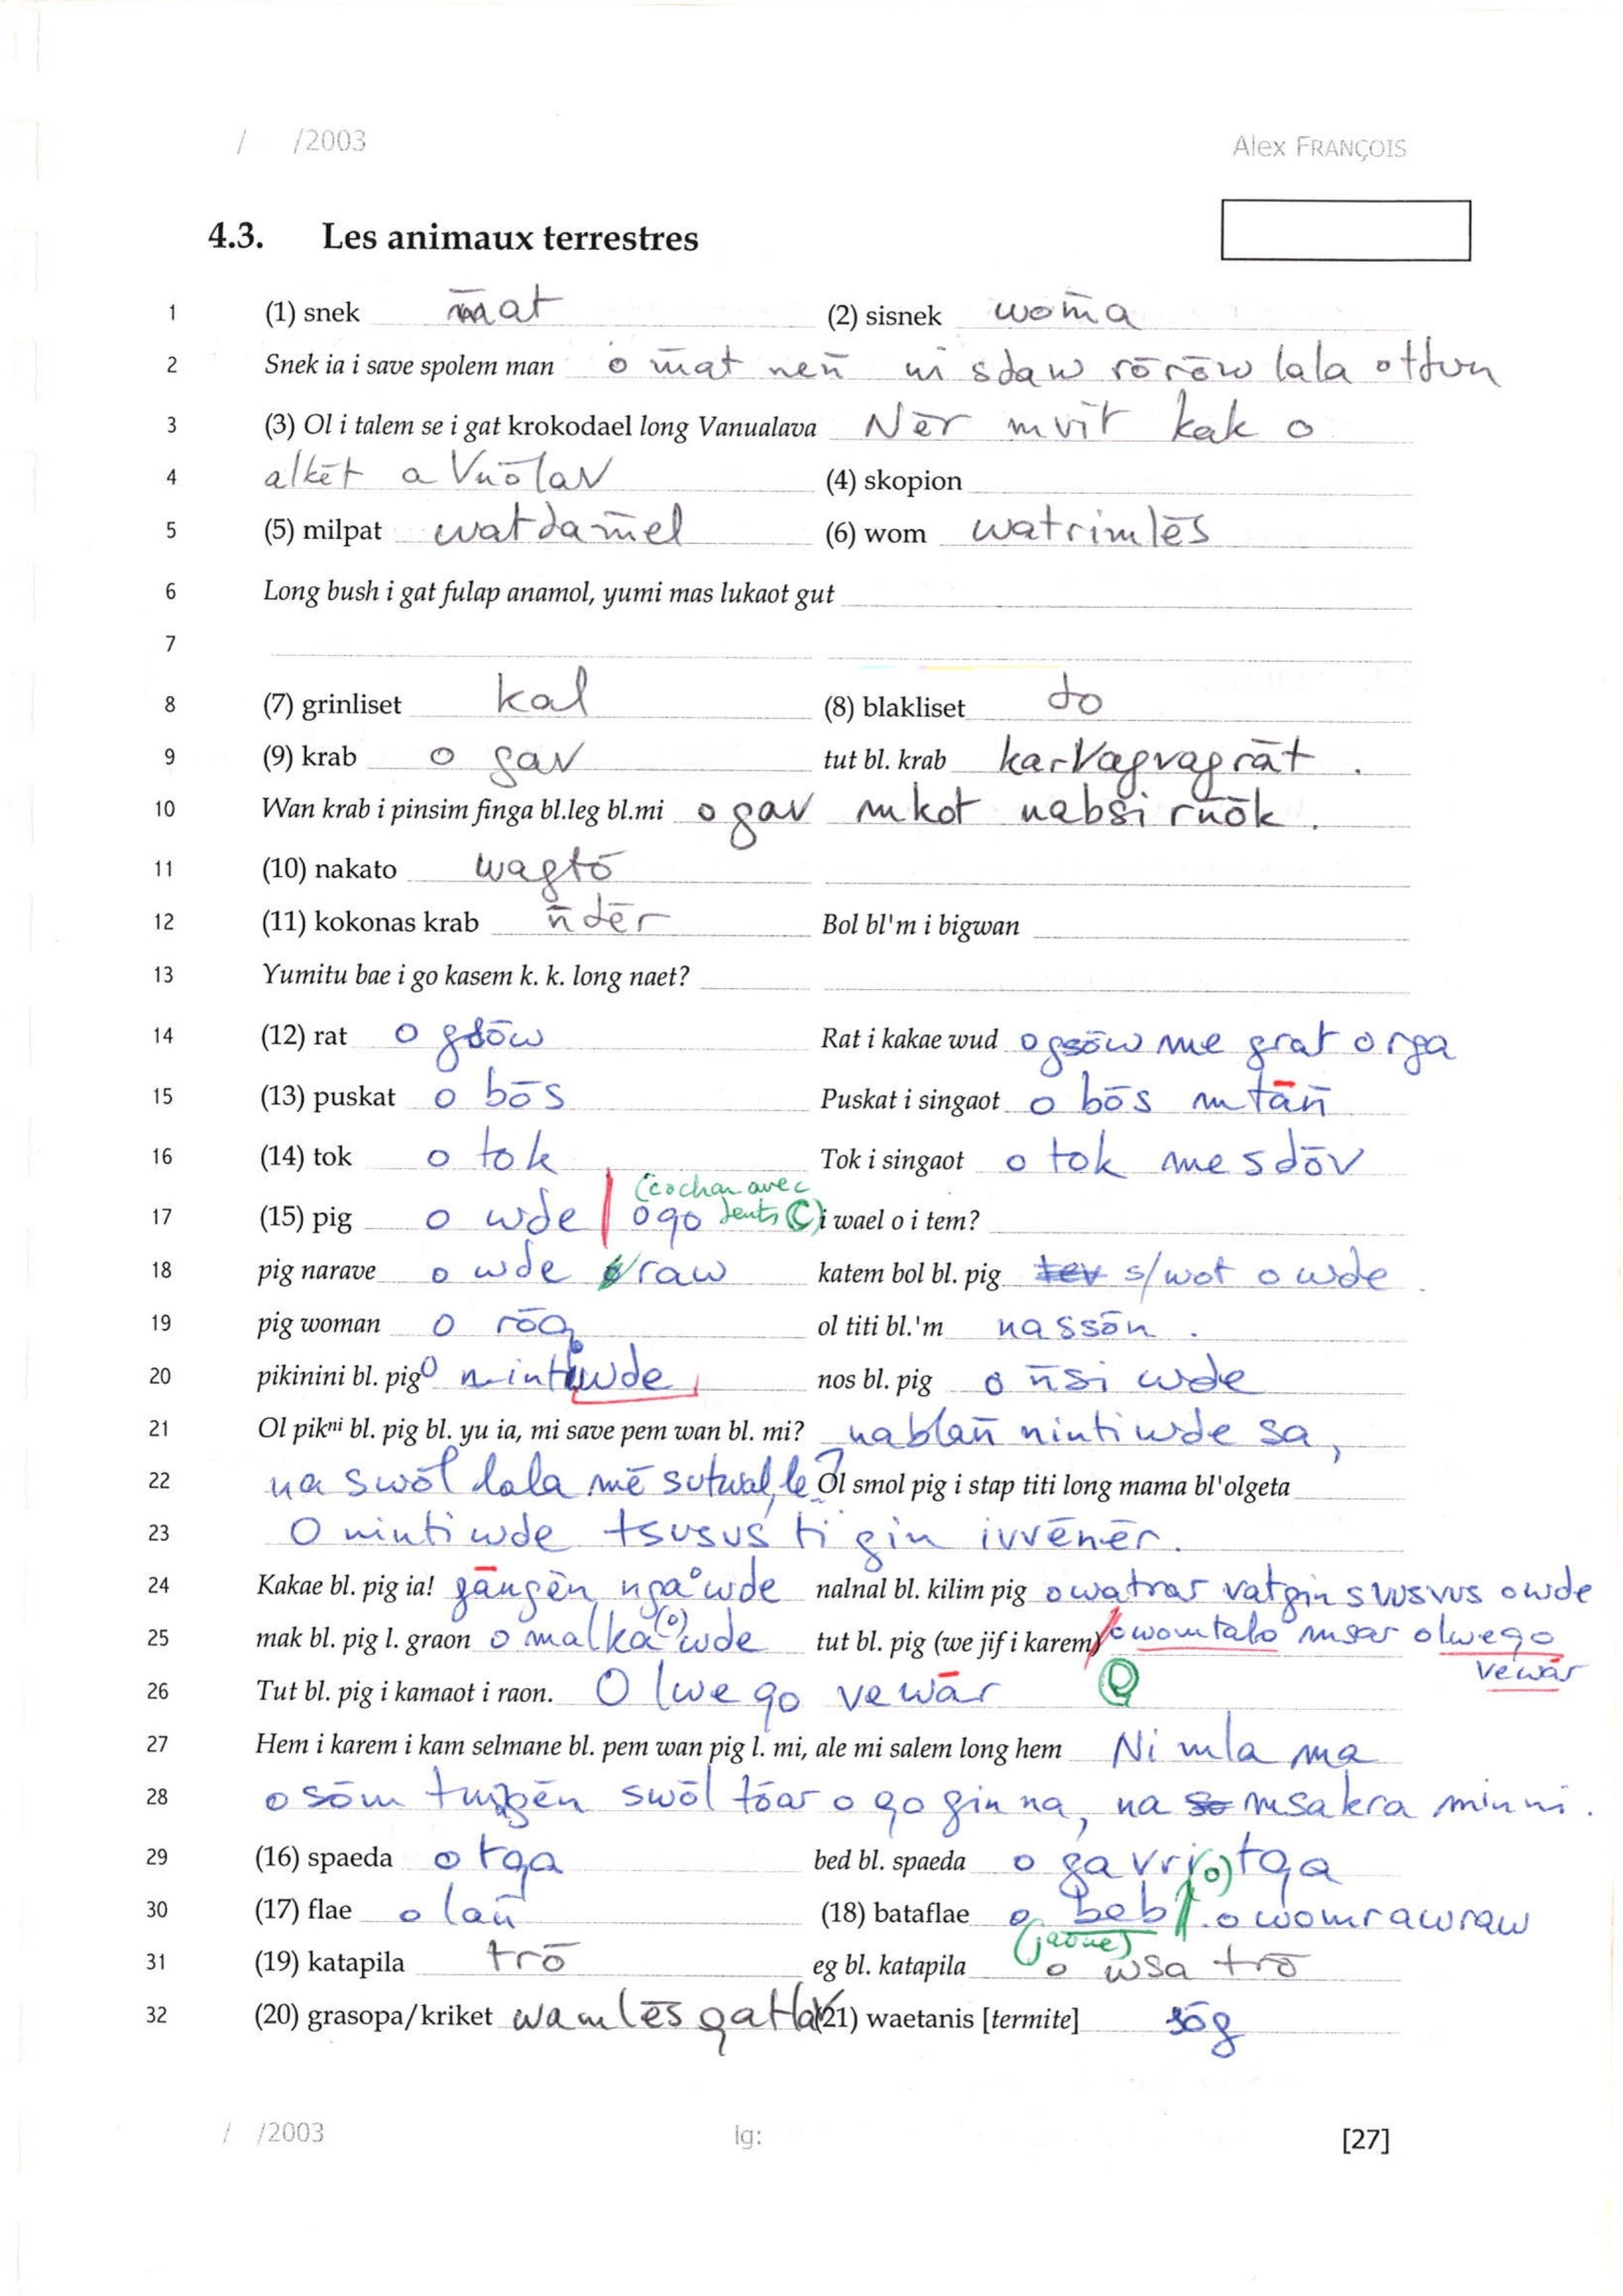 / /2003 Alex FRANÇOIS
4.3. Les animaux terrestres
1 (1) snek m̄at (2) sisnek wom̄a
2 Snek ia i save spolem man o m̄at nen̄ ni sdaw rōrōw lala ottvn
3 (3) Ol i talem se i gat krokodael long Vanualava Nēr mvit kak o
4 alkēt a Vn̄ōlav (4) skopion
5 (5) milpat watdam̄el (6) wom watrimlēs
6 Long bush i gat fulap anamol, yumi mas lukaot gut
7
8 (7) grinliset kal (8) blakliset do
9 (9) krab o gav tut bl. krab karvagvagrāt .
10 Wan krab i pinsim finga bl.leg bl.mi o gav mkot nabsi rn̄ōk .
11 (10) nakato wagtō
12 (11) kokonas krab n̄dēr Bol bl'm i bigwan
13 Yumitu bae i go kasem k. k. long naet?
14 (12) rat o gsōw Rat i kakae wud o gsōw me grat o rga
15 (13) puskat o bōs Puskat i singaot o bōs m tān̄
16 (14) tok o tok Tok i singaot o tok me sdōv
17 (15) pig o wde | o qo (cochon avec dents C) i wael o i tem?
18 pig narave o wde raw katem bol bl. pig tev s/wot o wde .
19 pig woman o rōq ol titi bl.'m na ssōn .
20 pikinini bl. pig O nintiwde nos bl. pig o n̄si wde
21 Ol pikni bl. pig bl. yu ia, mi save pem wan bl. mi? na blan̄ ninti wde sa,
22 na swōl lala mē sutwal le? Ol smol pig i stap titi long mama bl'olgeta
23 O ninti wde tsusus ti gin ivvēnēr.
24 Kakae bl. pig ia! gāngēn nga o wde nalnal bl. kilim pig o watrar vatgin svusvus o wde
25 mak bl. pig l. graon o malka (o) wde tut bl. pig (we jif i karem) o womtalo msar o lwego
vewār
26 Tut bl. pig i kamaot i raon. O lwe qo vewār
27 Hem i karem i kam selmane bl. pem wan pig l. mi, ale mi salem long hem Ni mla ma
28 o sōm swōl tōar o qo gin na, na so msakra min ni .
29 (16) spaeda o tqa bed bl. spaeda o gavri (o) tqa
30 (17) flae o lan̄ (18) bataflae o beb . o womrawraw
(jaune)
31 (19) katapila trō eg bl. katapila o wsa trō
32 (20) grasopa/kriket wamlēs qatlav (21) waetanis [termite] sōg
/ /2003 lg: [27]